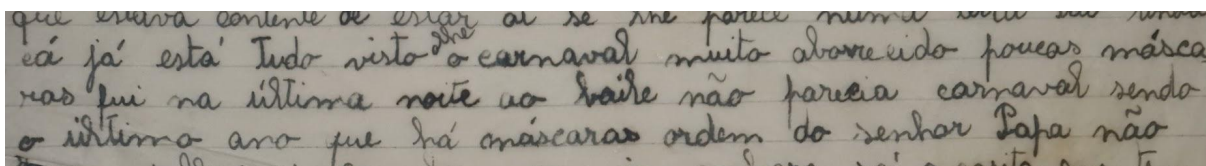 que estava contente de estar aí se lhe parece numa
cá já está Tudo visto lhe o carnaval muito aborrecido poucas másca
ras fui na última noite ao baile não parecia carnaval sendo
o último ano que há máscaras ordem do senhor Papa não